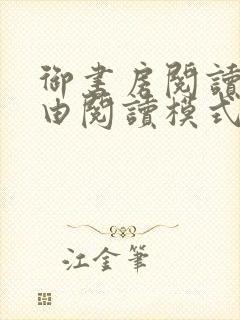 御書房閱讀
由閱讀模式
江金筆